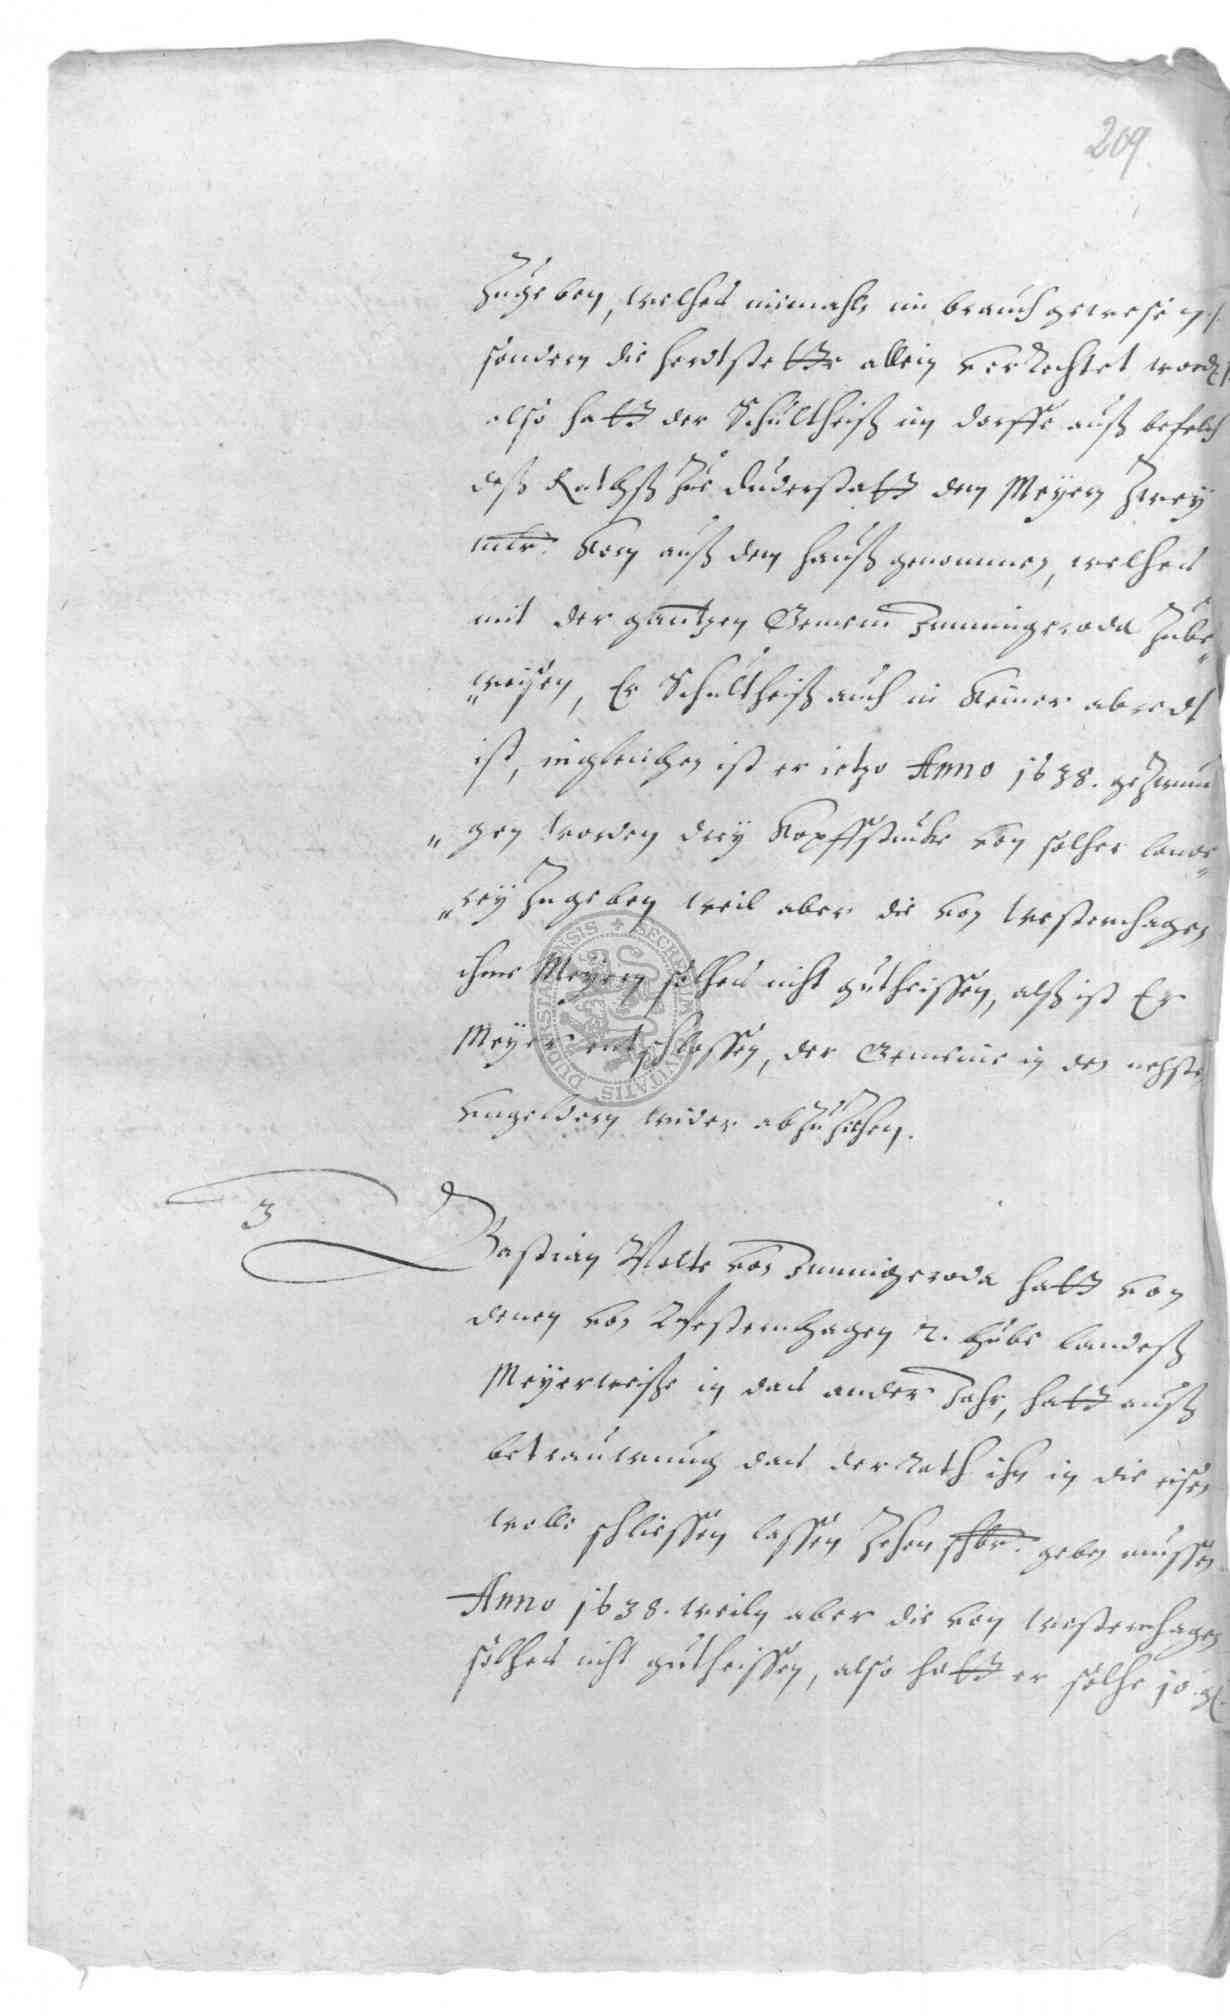 209
Zugeben, welches niemahls im brauch gewesen,
sondern die herdtstette allein verRechtet word
also hatt der Schultheiß im dorffe auß befelch
deß Rathß zue Duderstatt dem Meyern Zwey
mlr. Korn auß dem hauß genommen, welches
mit der gantzen Gemein Immingeroda zube„
„weisen, Er Schultheiß auch in Keiner abredt
ist, ingleichen ist er ietzo Anno 1638. gezwun
„gen worden drey Kopffstucke von solcher lande„
„rey Zugeben weil aber die von Westernhagen
ihme Meyern solches nicht gutheissen, alß ist Er
Meyer entschlossen, der Gemeine in den nehsten
ungeldern wider abzuziehen.
3
Bastian Nolte von Immingeroda hatt von
denen von Westernhagen 2. hube landeß
Meyerweise in das ander Jahr, hatt auß
betrauwung das der Rath ihn in die eisen
wolle schliessen lassen Zehen ggr. geben mussen
Anno 1638. weiln aber die von Westernhagen
solches nicht gutheissen, also hatt er solche 10 g
SECRETUM DUDERSTADENSIS CIVITATIS